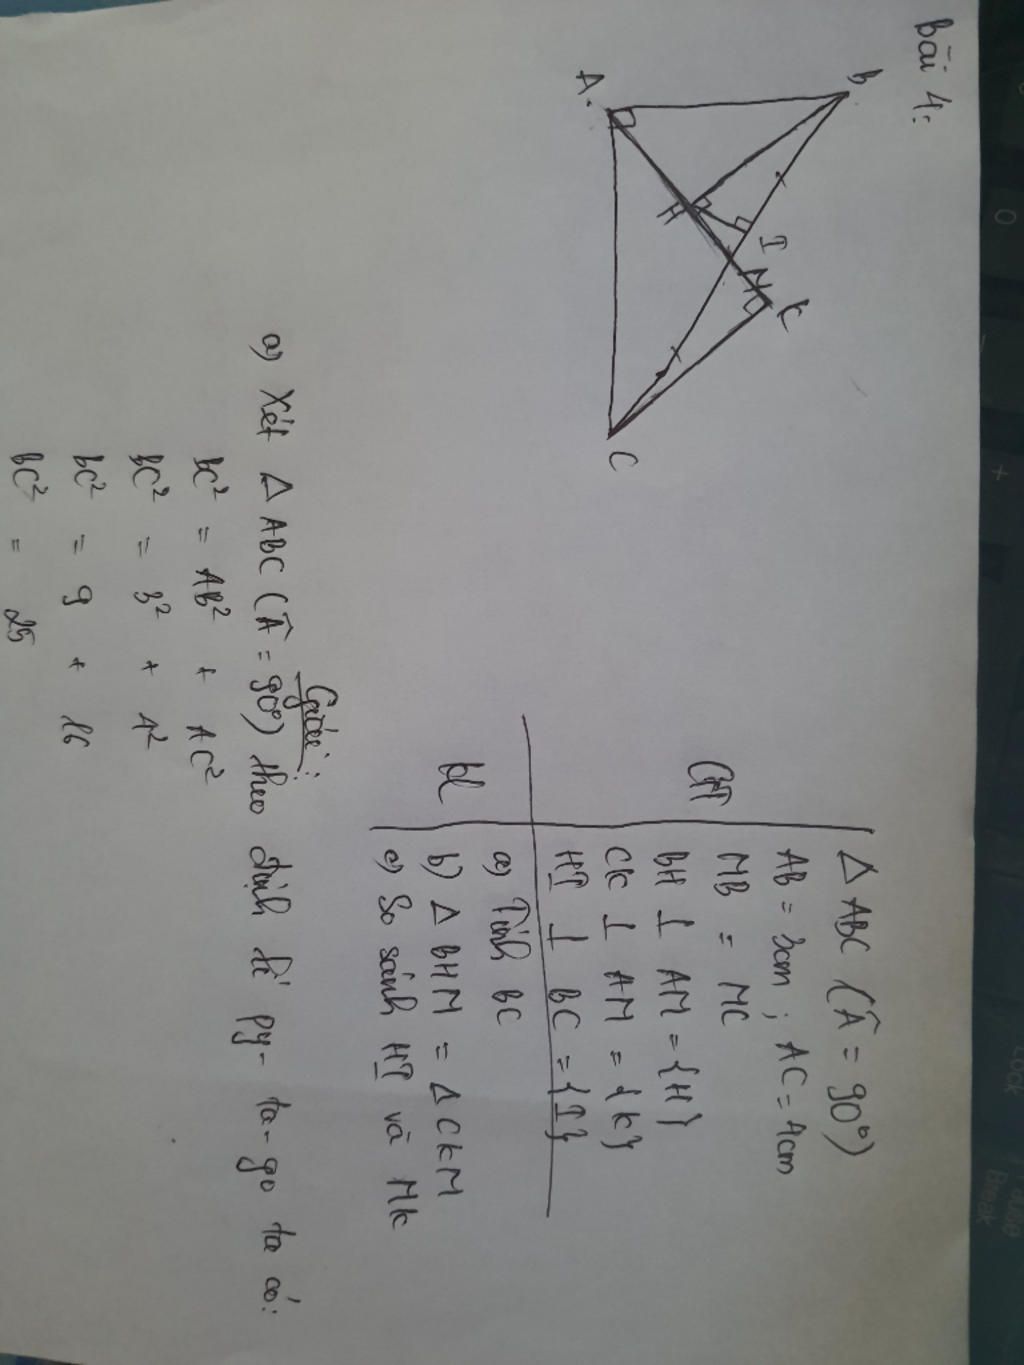 Bài 4:
B
A
H
I
M
K
C
GT
Δ ABC (Â = 90°)
AB = 3cm ; AC = 4cm
MB = MC
BH ⊥ AM = {H}
CK ⊥ AM = {K}
HI ⊥ BC = {I}
KL
a) Tính BC
b) Δ BHM = Δ CKM
c) So sánh HI và MK
Giải:
a) Xét Δ ABC (Â = 90°) theo định lí py-ta-go ta có:
BC² = AB² + AC²
BC² = 3² + 4²
BC² = 9 + 16
BC² = 25